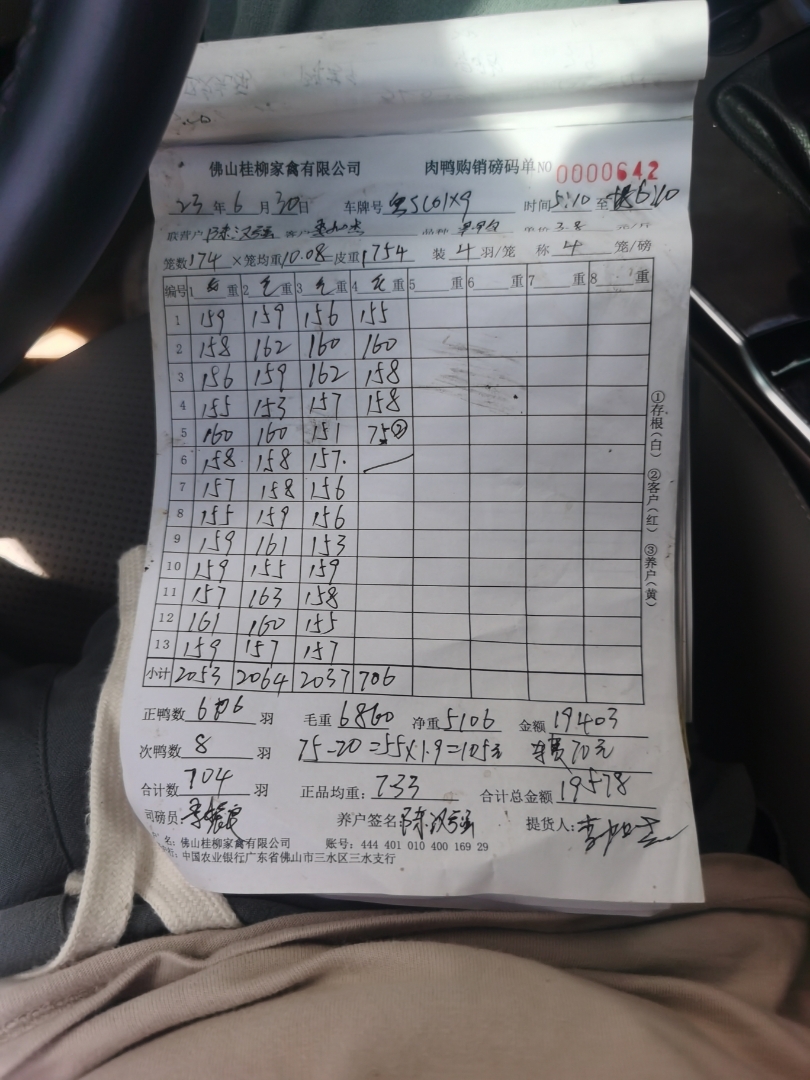 佛山桂柳家禽有限公司 肉鸭购销磅码单 NO 0000642
23 年 6 月 30 日 车牌号 时间 5:10 至 6:10
笼数 174 ×笼均重 10.08 皮重 1754 装 4 羽/笼 称 4 笼/磅
编号 1 毛 重 2 毛 重 3 毛 重 4 毛 重 5 重 6 重 7 重 8 重
1 159 159 156 155
2 158 162 160 160
3 156 159 162 158
4 155 153 157 158
5 160 160 151 75②
6 158 158 157
7 157 158 156
8 155 159 156
9 159 161 153
10 159 155 159
11 157 163 158
12 161 160 155
13 159 157 157
小计 2053 2064 2037 706
正鸭数 羽 毛重 6860 净重 5106 金额 19403
次鸭数 8 羽 75-20=55×1.9=105元 车费70元
合计数 704 羽 正品均重: 733 合计总金额 19578
司磅员: 养户签名: 提货人:
名: 佛山桂柳家禽有限公司 账号: 444 401 010 400 169 29
中国农业银行广东省佛山市三水区三水支行
①存根(白) ②客户(红) ③养户(黄)